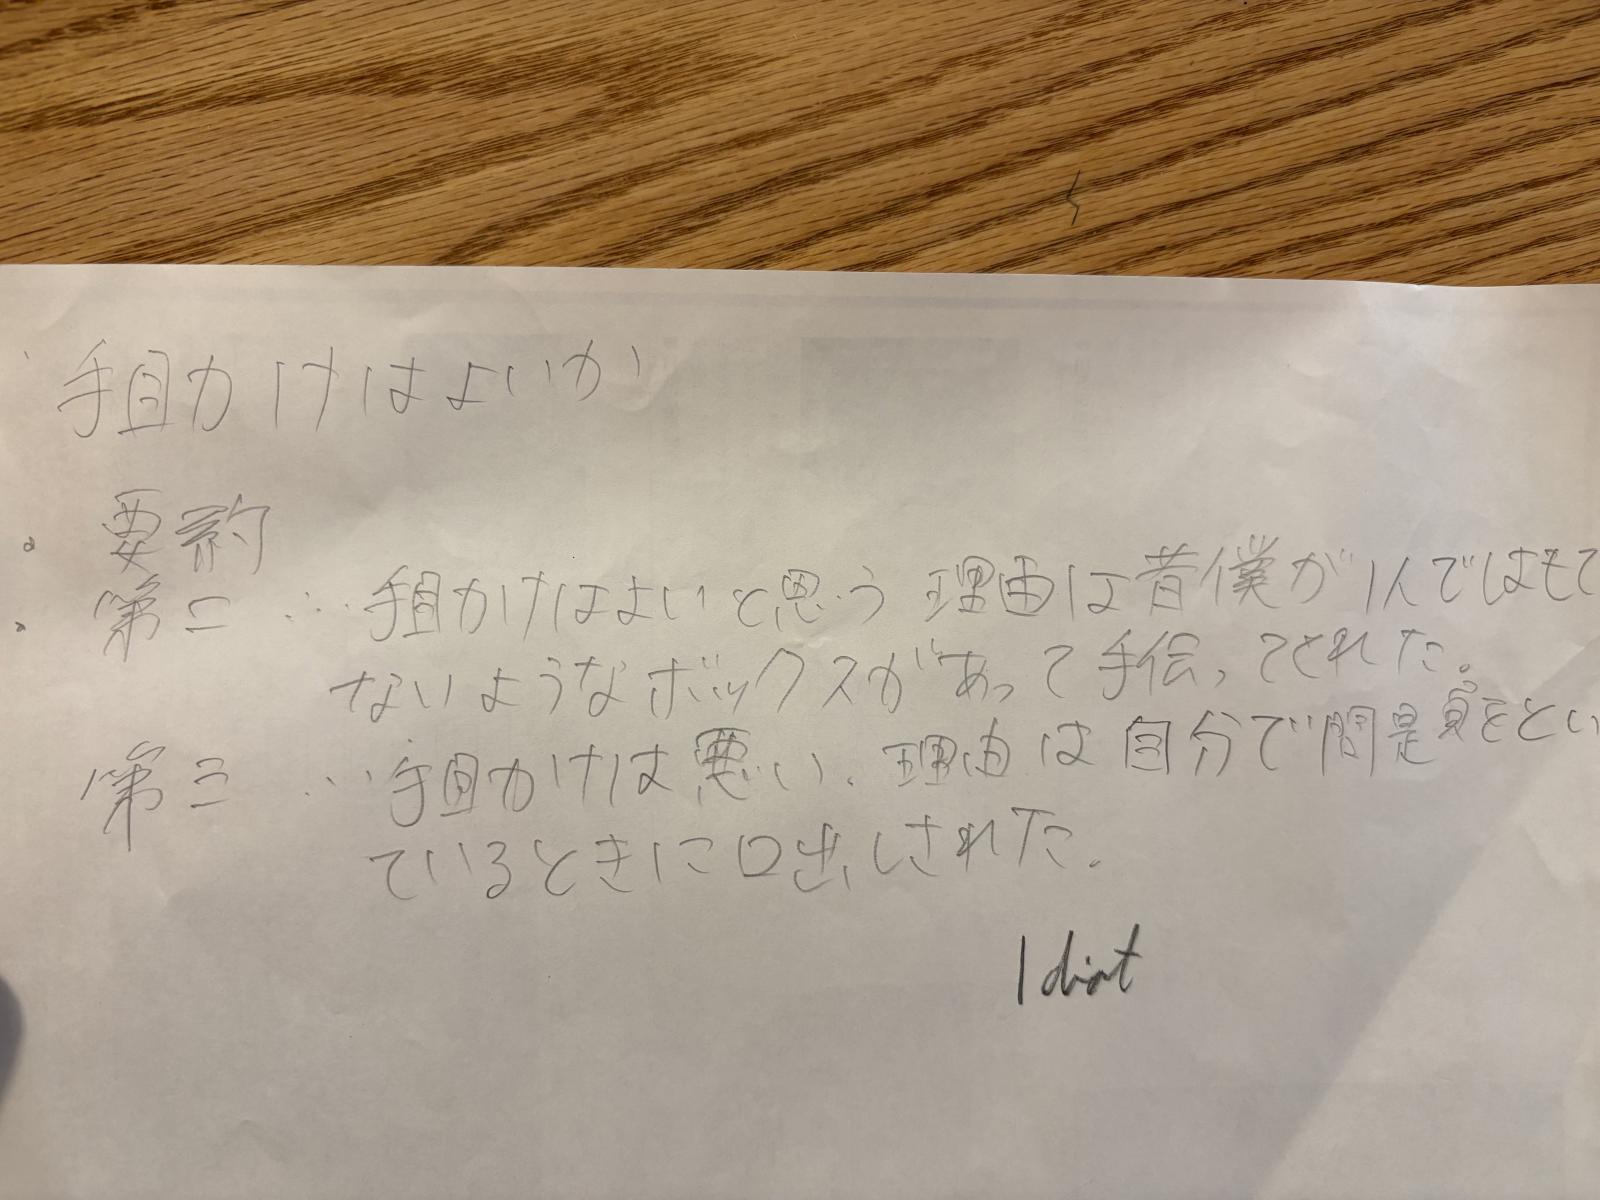 手目かけはよいか
・要約
・第二 … 手目かけはよいと思う 理由は昔僕が1人ではもて
ないようなボックスがあって手伝ってくれた。
第三 … 手目かけは悪い。理由は自分で問題をとい
ているときに口出しされた。
Idiot